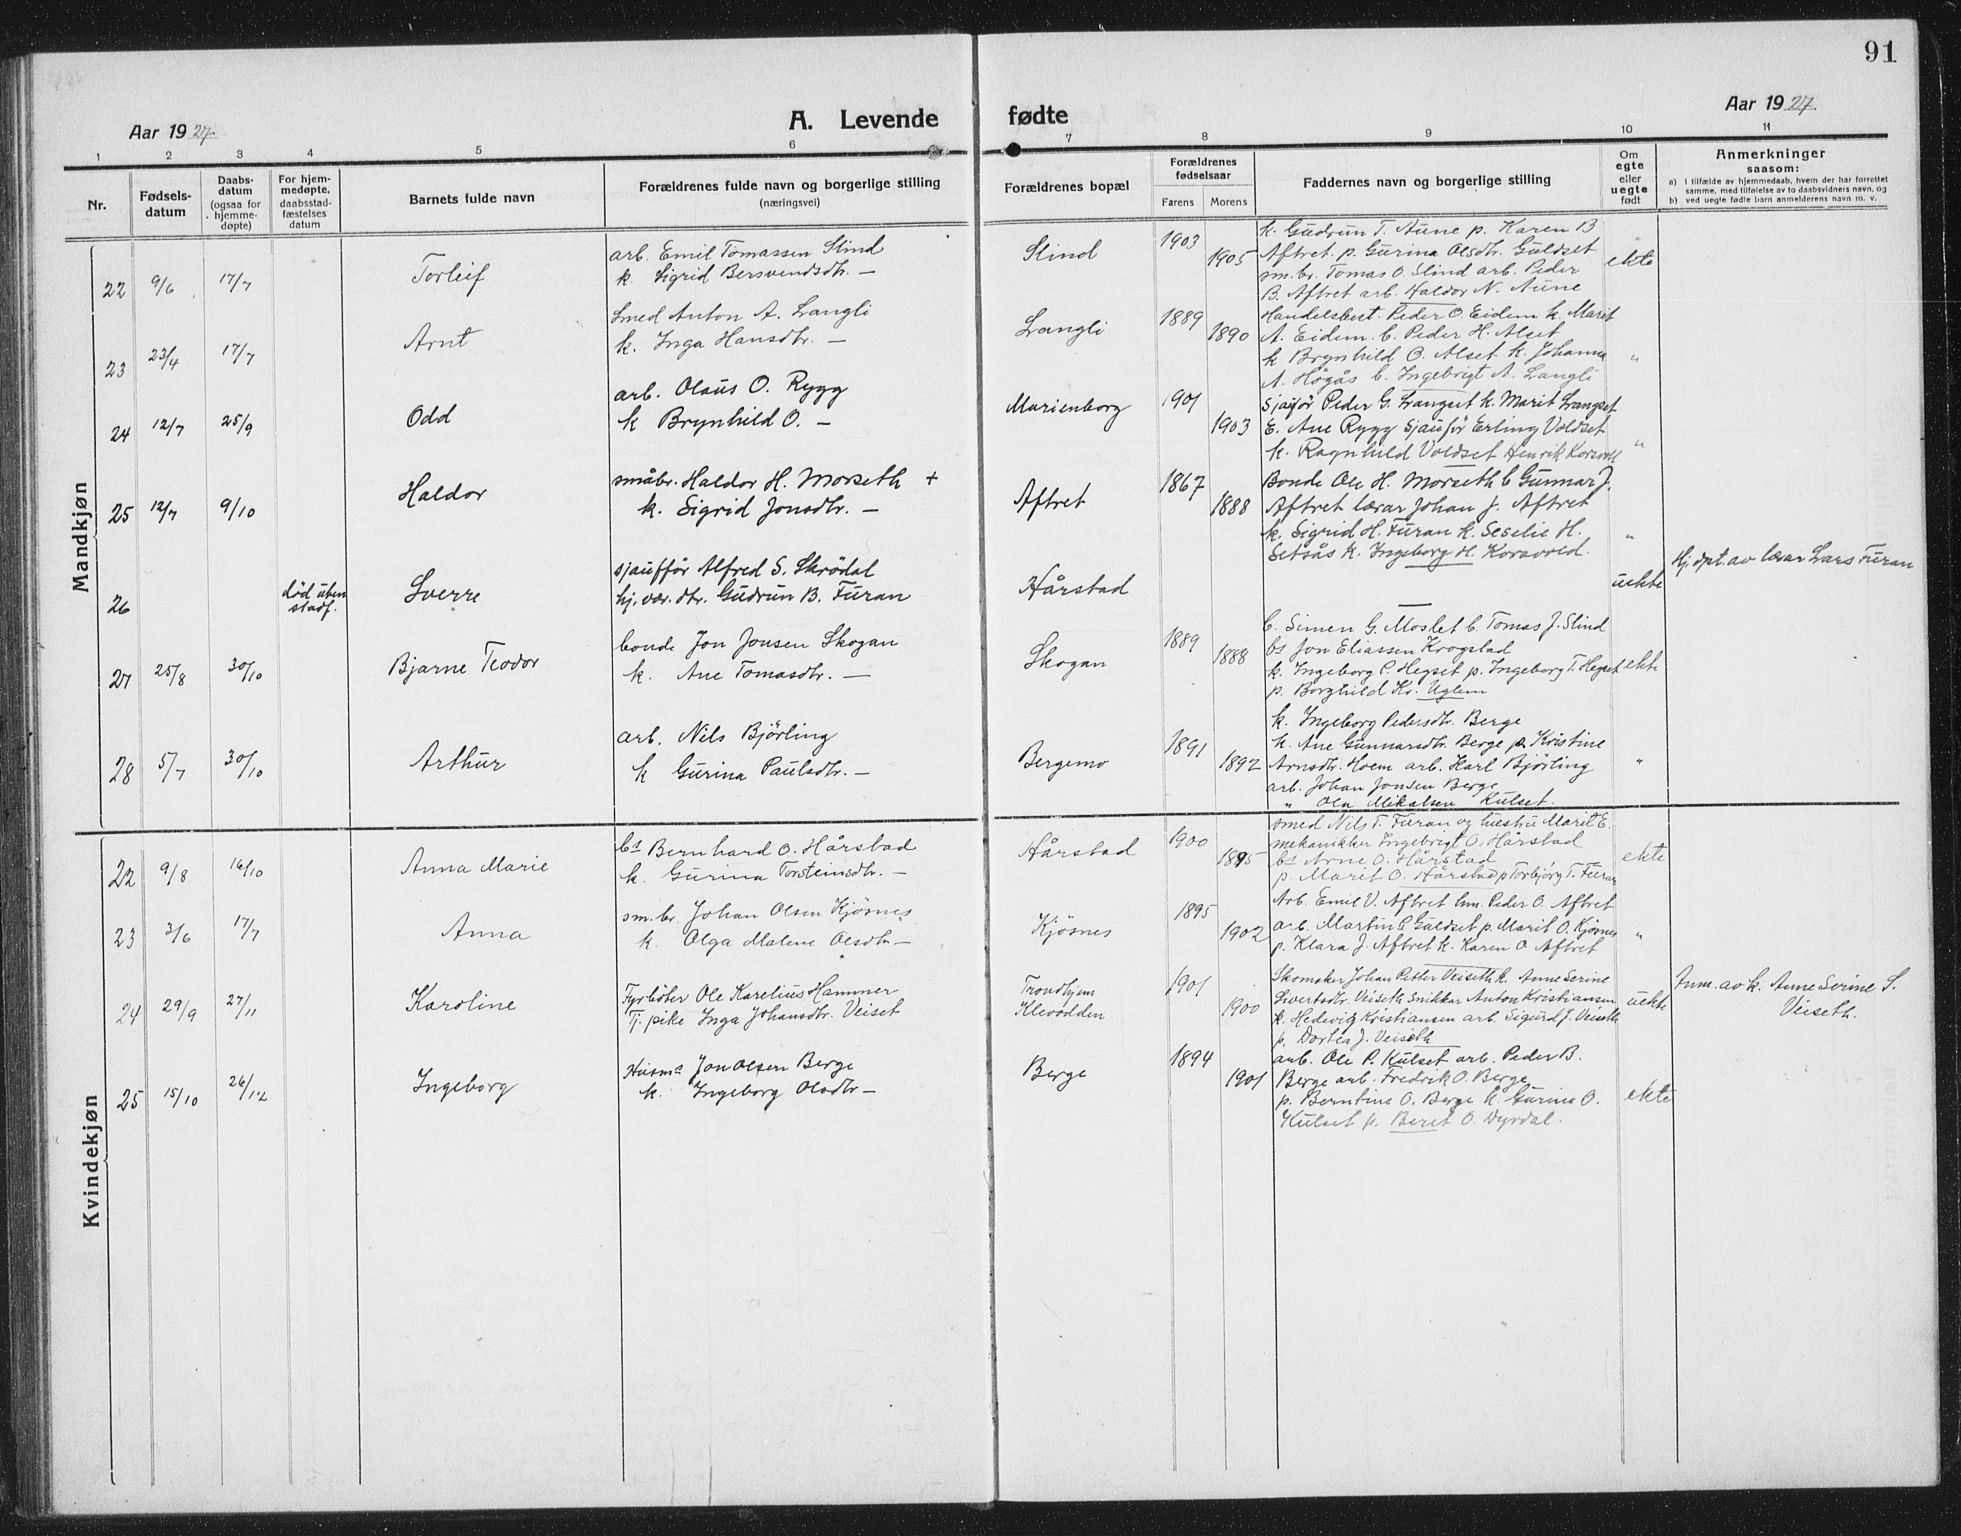 91
Aar 1927
A. Levende
fødte
Aar 1927
1 2 3 4 5 6 7 8 9 10 11
Nr.
Fødsels-
datum
Daabs-
datum
(ogsaa for
hjemme-
døpte)
For hjem-
medøpte,
daabsstad-
fæstelses
datum
Barnets fulde navn
Forældrenes fulde navn og borgerlige stilling
(næringsvei)
Forældrenes bopæl
Forældrenes
fødselsaar
Farens Morens
Faddernes navn og borgerlige stilling
Om
egte
eller
uegte
født
Anmerkninger
saasom:
a) I tilfælde av hjemmedaab, hvem der har forrettet
samme, med tilføielse av to daabsvidners navn, og
b) ved uegte fødte barn anmelderens navn m. v.
Mandkjøn
22 9/6 17/7 Torleif
arb. Emil Tomassen Slind
k. Sigrid Bersvendsdtr. —
Slind 1903 1905
k. Gudrun T. Aune p. Karen B
Aftret p. Gurina Olsdtr. Guldset
sm.br. Tomas O. Slind arb. Peder
B. Aftret arb. Haldor N. Aune
ekte
23 23/4 17/7 Arnt
Smed Anton A. Langli
k. Inga Hansdtr. —
Langli 1889 1890
Handelsbest. Peder O. Eidem k. Marit
A. Eidem b. Peder H. Alset
k Brynhild O. Alset k. Johanna
A. Högås b. Ingebrigt A. Langli
"
24 12/7 25/9 Odd
arb. Olaus O. Rygg
k Brynhild O. —
Marienborg 1901 1903
Sjaufør Peder G. Langset k. Marit Langset
E. Ane Rygg Sjaufør Erling Voldset
k. Ragnhild Voldset Henrik Korsvold
"
25 12/7 9/10 Haldor
småbr. Haldor H. Morseth +
k. Sigrid Jonsdtr. —
Aftret 1867 1888
Bonde Ole H. Morseth b Gunnar J.
Aftret lærar Johan J. Aftret
k. Sigrid H. Furan k. Sesilie H.
Setsås k. Ingeborg H. Korsvold.
"
26 død uten
stadf. Sverre
sjauffør Alfred S. Skrödal
hj. vær. dtr. Gudrun B. Furan
Hårstad
—
uekte
Hj. dpt. av lærar Lars Furan
27 25/8 30/10 Bjarne Teodor
bonde Jon Jonsen Skogan
k. Ane Tomasdtr. —
Skogan 1889 1888
b. Simen G. Moslet b. Tomas J. Slind
bs Jon Eliassen Krogstad
k. Ingeborg P. Hegset p. Ingeborg T. Hegset
p. Borghild Kr. Uglem
ekte
28 5/7 30/10 Arthur
arb. Nils Bjørling
k Gurina Paulsdtr. —
Bergemo 1891 1892
k. Ingeborg Pedersdtr. Berge
k. Ane Gunnarsdtr. Berge p. Kristine
Arnsdtr. Hoem arb. Karl Bjørling
arb. Johan Jonsen Berge
" Ola Mikalsen Kulset.
"
Kvindekjøn
22 9/8 16/10 Anna Marie
bs Bernhard O. Hårstad
k. Gurina Torsteinsdtr. —
Hårstad 1900 1895
smed Nils T. Furan og hustru Marit E.
mekanikker Ingebrigt O. Hårstad
bs Arne O. Hårstad
p. Marit O. Hårstad p Torbjørg T. Furan
ekte
23 3/6 17/7 Anna
sm.br. Johan Olsen Kjøsnes
k. Olga Malene Olsdtr —
Kjøsnes 1895 1902
Arb. Emil V. Aftret hm. Peder O. Aftret
arb. Martin P. Guldset p. Marit O. Kjøsnes
p. Klara J. Aftret k. Karen O Aftret
"
24 29/9 27/11 Karoline
Fyrbøter Ole Karelius Hammer
Tj. pike Inga Johansdtr. Veiset
Trondhjem
Klevodden 1901 1900
Skomaker Johan Petter Veiseth k. Anne Serine
Sivertsdtr. Veiseth Snikkar Anton Kristiansen
k. Hedevig Kristiansen arb. Sigurd J. Veiseth
p. Dortea J. Veiseth
uekte
Anm. av k. Anne Serine S.
Veiseth.
25 15/10 26/12 Ingeborg
Husm. Jon Olsen Berge
k. Ingeborg Olsdtr —
Berge 1894 1901
arb. Ole P. Kulset arb. Peder B.
Berge arb. Fredrik O. Berge
p. Berntine O. Berge k. Gurine O.
Kulset p. Beret O. Dyrdal.
ekte